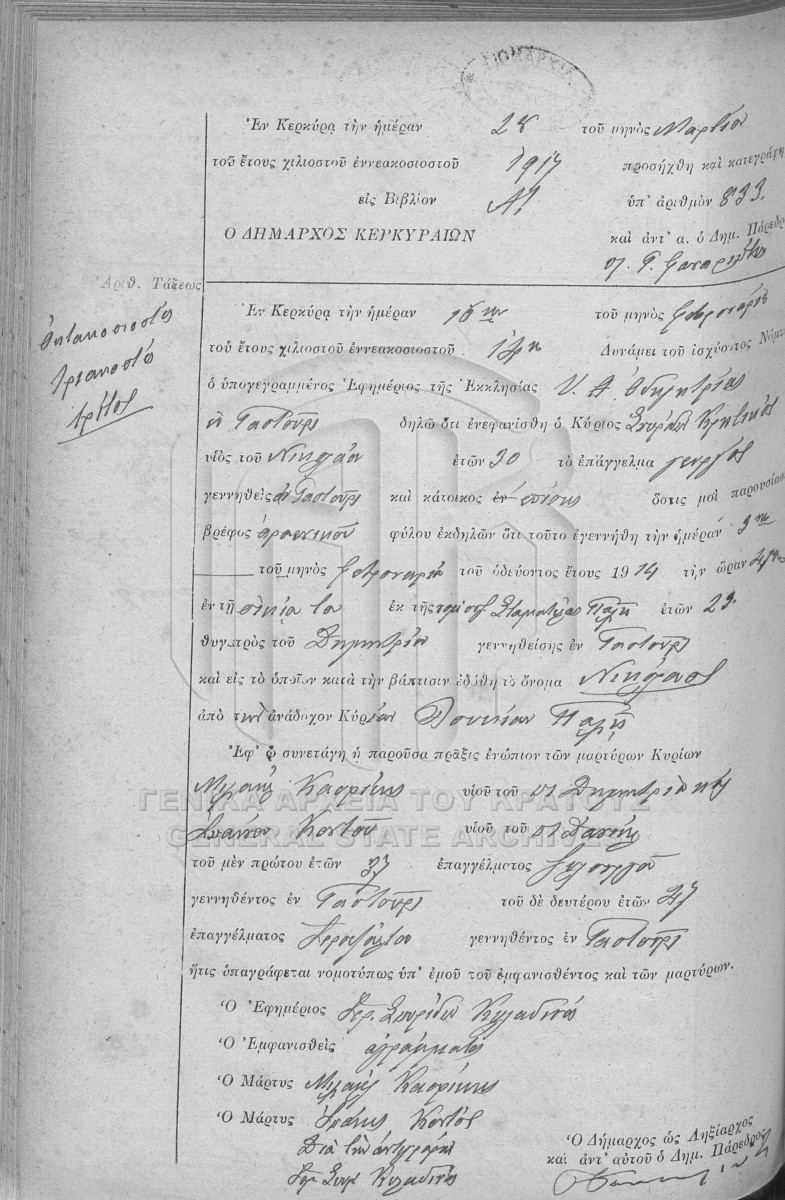 Ἐν Κερκύρᾳ τὴν ἡμέραν 28 τοῦ μηνὸς Μαρτίου
τοῦ ἔτους χιλιοστοῦ ἐννεακοσιοστοῦ 1917 προσήχθη καὶ κατεγράφη
εἰς Βιβλίον Α! ὑπ' ἀριθμὸν 833.
Ο ΔΗΜΑΡΧΟΣ ΚΕΡΚΥΡΑΙΩΝ καὶ ἀντ' α. ὁ Δημ. Πάρεδρος
Ἀριθ. Τάξεως
ὀκτακοσιοστὸς
τριακοστὸς
τρίτος
Ἐν Κερκύρᾳ τὴν ἡμέραν τοῦ μηνὸς Φεβρουαρίου
τοῦ ἔτους χιλιοστοῦ ἐννεακοσιοστοῦ 14ου Δυνάμει τοῦ ἰσχύοντος Νόμου
ὁ ὑπογεγραμμένος Ἐφημέριος τῆς Ἐκκλησίας Υ. Θ. Ὁδηγητρίας
Γαστοῦρι δηλῶ ὅτι ἐνεφανίσθη ὁ Κύριος Σπυρίδων Κρητικὸς
υἱὸς τοῦ Νικολάου ἐτῶν 30 τὸ ἐπάγγελμα γεωργὸς
γεννηθεὶς ἐν Γαστοῦρι καὶ κάτοικος ἐν ἐπίσης ὅστις μοὶ παρουσίασε
βρέφος ἀρσενικοῦ φύλου ἐκδηλῶν ὅτι τοῦτο ἐγεννήθη τὴν ἡμέραν 3ην
τοῦ μηνὸς Φεβρουαρίου τοῦ ὁδεύοντος ἔτους 1914 τὴν ὥραν
ἐν τῇ οἰκίᾳ του ἐκ τῆς συζύγου Σταματέλας ἐτῶν 23.
θυγατρὸς τοῦ Δημητρίου γεννηθείσης ἐν Γαστοῦρι
καὶ εἰς τὸ ὁποῖον κατὰ τὴν βάπτισιν ἐδόθη τὸ ὄνομα Νικόλαος
ἀπὸ τὴν ἀνάδοχον Κυρίαν
Ἐφ' ᾧ συνετάγη ἡ παροῦσα πρᾶξις ἐνώπιον τῶν μαρτύρων Κυρίων
Μιχαὴλ υἱοῦ τοῦ Δημητρίου καὶ
ΓΕΝΙΚΑ ΑΡΧΕΙΑ ΤΟΥ ΚΡΑΤΟΥΣ
Ἰωάννου Κοντοῦ υἱοῦ τοῦ
GENERAL STATE ARCHIVES
τοῦ μὲν πρώτου ἐτῶν 37 ἐπαγγέλματος ξυλουργοῦ
γεννηθέντος ἐν Γαστοῦρι τοῦ δὲ δευτέρου ἐτῶν 27
ἐπαγγέλματος γεννηθέντος ἐν Γαστοῦρι
ἥτις ὑπαγράφεται νομοτύπως ὑπ' ἐμοῦ τοῦ ἐμφανισθέντος καὶ τῶν μαρτύρων.
Ὁ Ἐφημέριος Ἱερ. Σπυρίδων
Ὁ Ἐμφανισθεὶς ἀγράμματος
Ὁ Μάρτυς Μιχαὴλ
Ὁ Μάρτυς Ἰωάννης Κοντὸς
Διὰ τὴν ἀντιγραφὴν
Ἱερ. Σπυρ.
Ὁ Δήμαρχος ὡς Ληξίαρχος
καὶ ἀντ' αὐτοῦ ὁ Δημ. Πάρεδρος